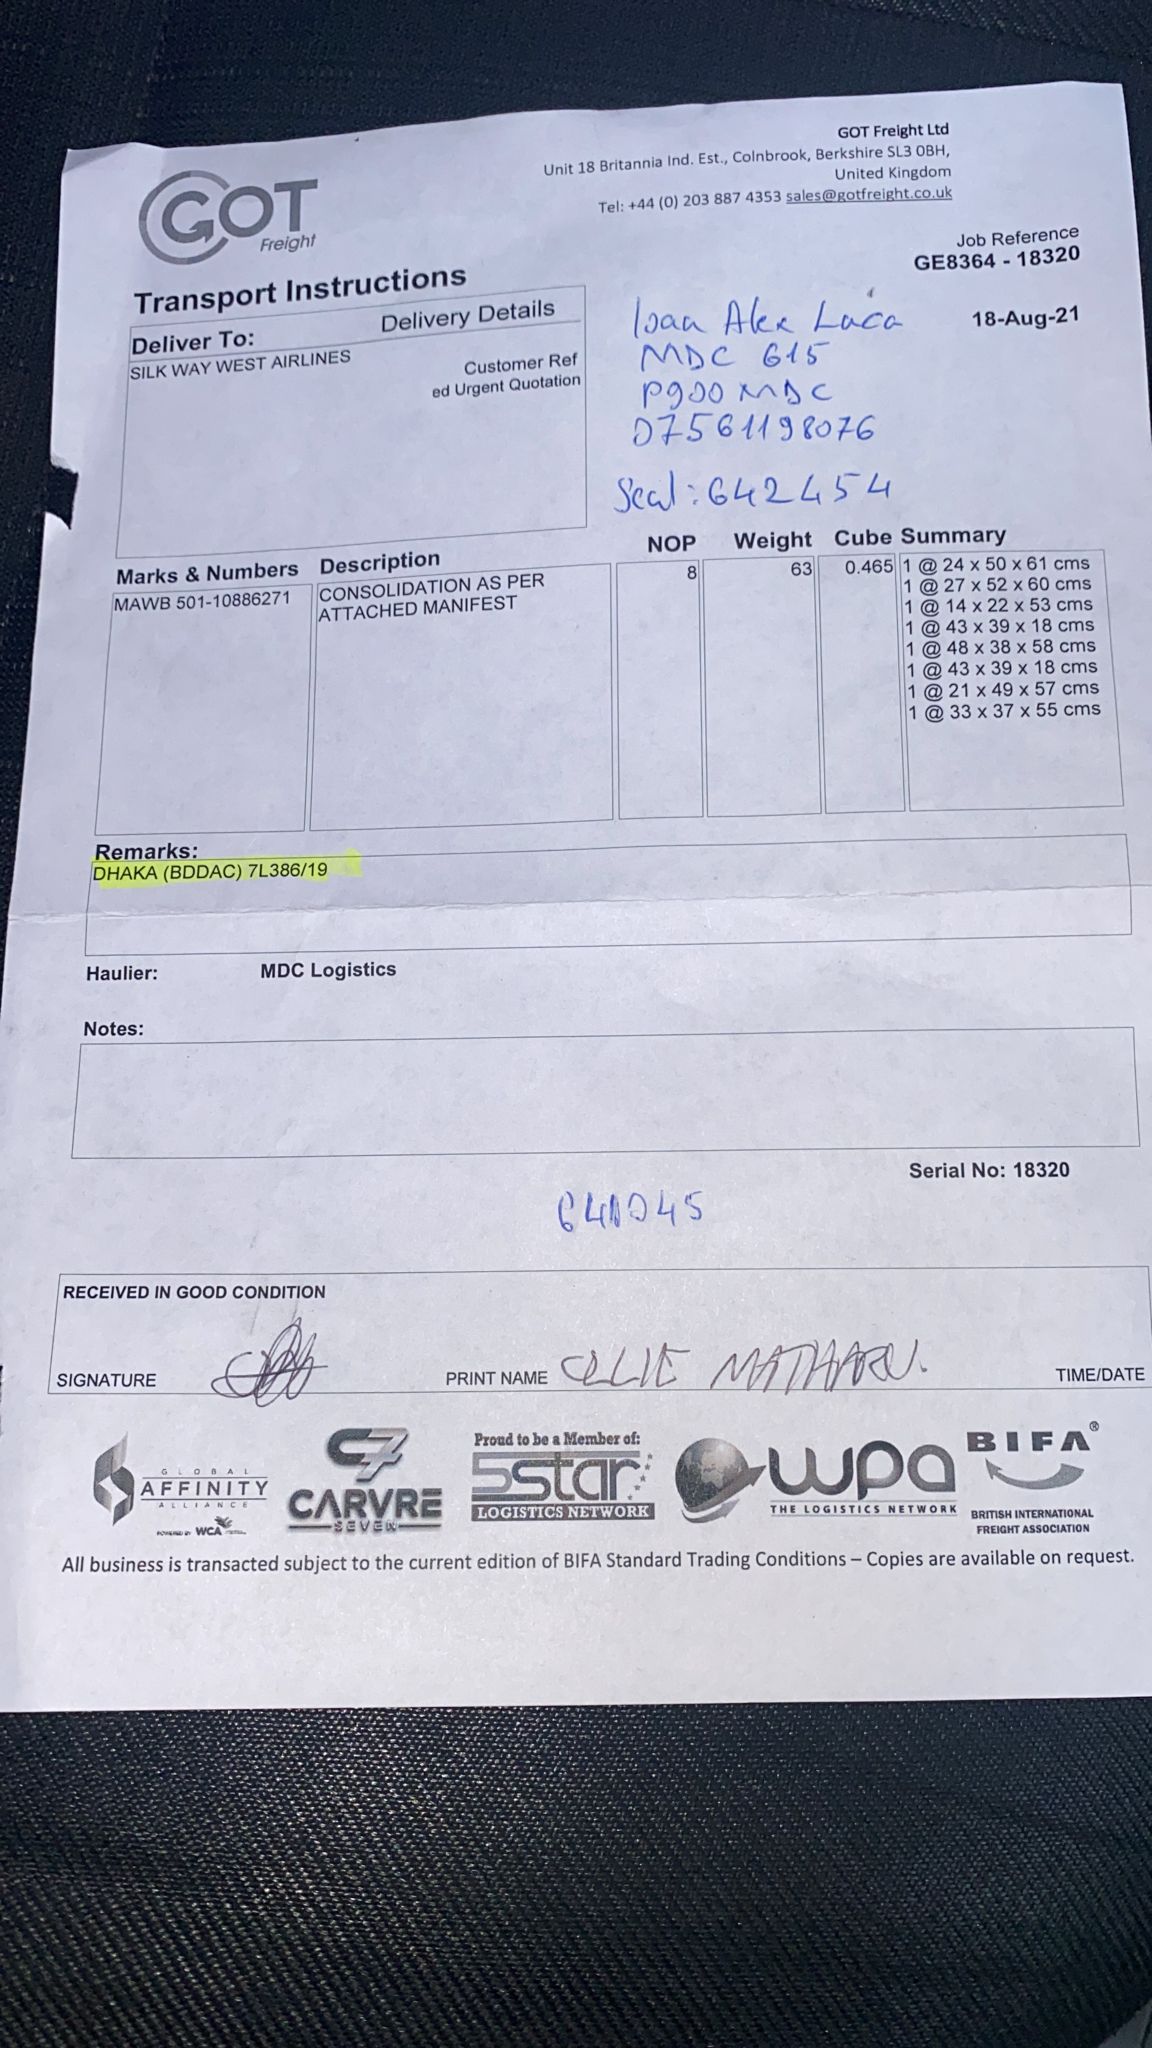 GOT Freight Ltd
Unit 18 Britannia Ind. Est., Colnbrook, Berkshire SL3 0BH,
United Kingdom
Tel: +44 (0) 203 887 4353 sales@gotfreight.co.uk
GOT
Freight
Job Reference
GE8364 - 18320
Transport Instructions
18-Aug-21
Deliver To:
Delivery Details
SILK WAY WEST AIRLINES
Customer Ref
ed Urgent Quotation
Ioan Alex Luca
MDC 615
P900 MDC
07561198076
Seal: 642454
Marks & Numbers Description NOP Weight Cube Summary
MAWB 501-10886271
CONSOLIDATION AS PER
ATTACHED MANIFEST
8
63
0.465
1 @ 24 x 50 x 61 cms
1 @ 27 x 52 x 60 cms
1 @ 14 x 22 x 53 cms
1 @ 43 x 39 x 18 cms
1 @ 48 x 38 x 58 cms
1 @ 43 x 39 x 18 cms
1 @ 21 x 49 x 57 cms
1 @ 33 x 37 x 55 cms
Remarks:
DHAKA (BDDAC) 7L386/19
Haulier: MDC Logistics
Notes:
Serial No: 18320
RECEIVED IN GOOD CONDITION
SIGNATURE
PRINT NAME OLLIE MATHARU.
TIME/DATE
GLOBAL
AFFINITY
ALLIANCE
POWERED BY WCA
C7
CARVRE
SEVEN
Proud to be a Member of:
5star
LOGISTICS NETWORK
wpa
THE LOGISTICS NETWORK
BIFA®
BRITISH INTERNATIONAL
FREIGHT ASSOCIATION
All business is transacted subject to the current edition of BIFA Standard Trading Conditions – Copies are available on request.